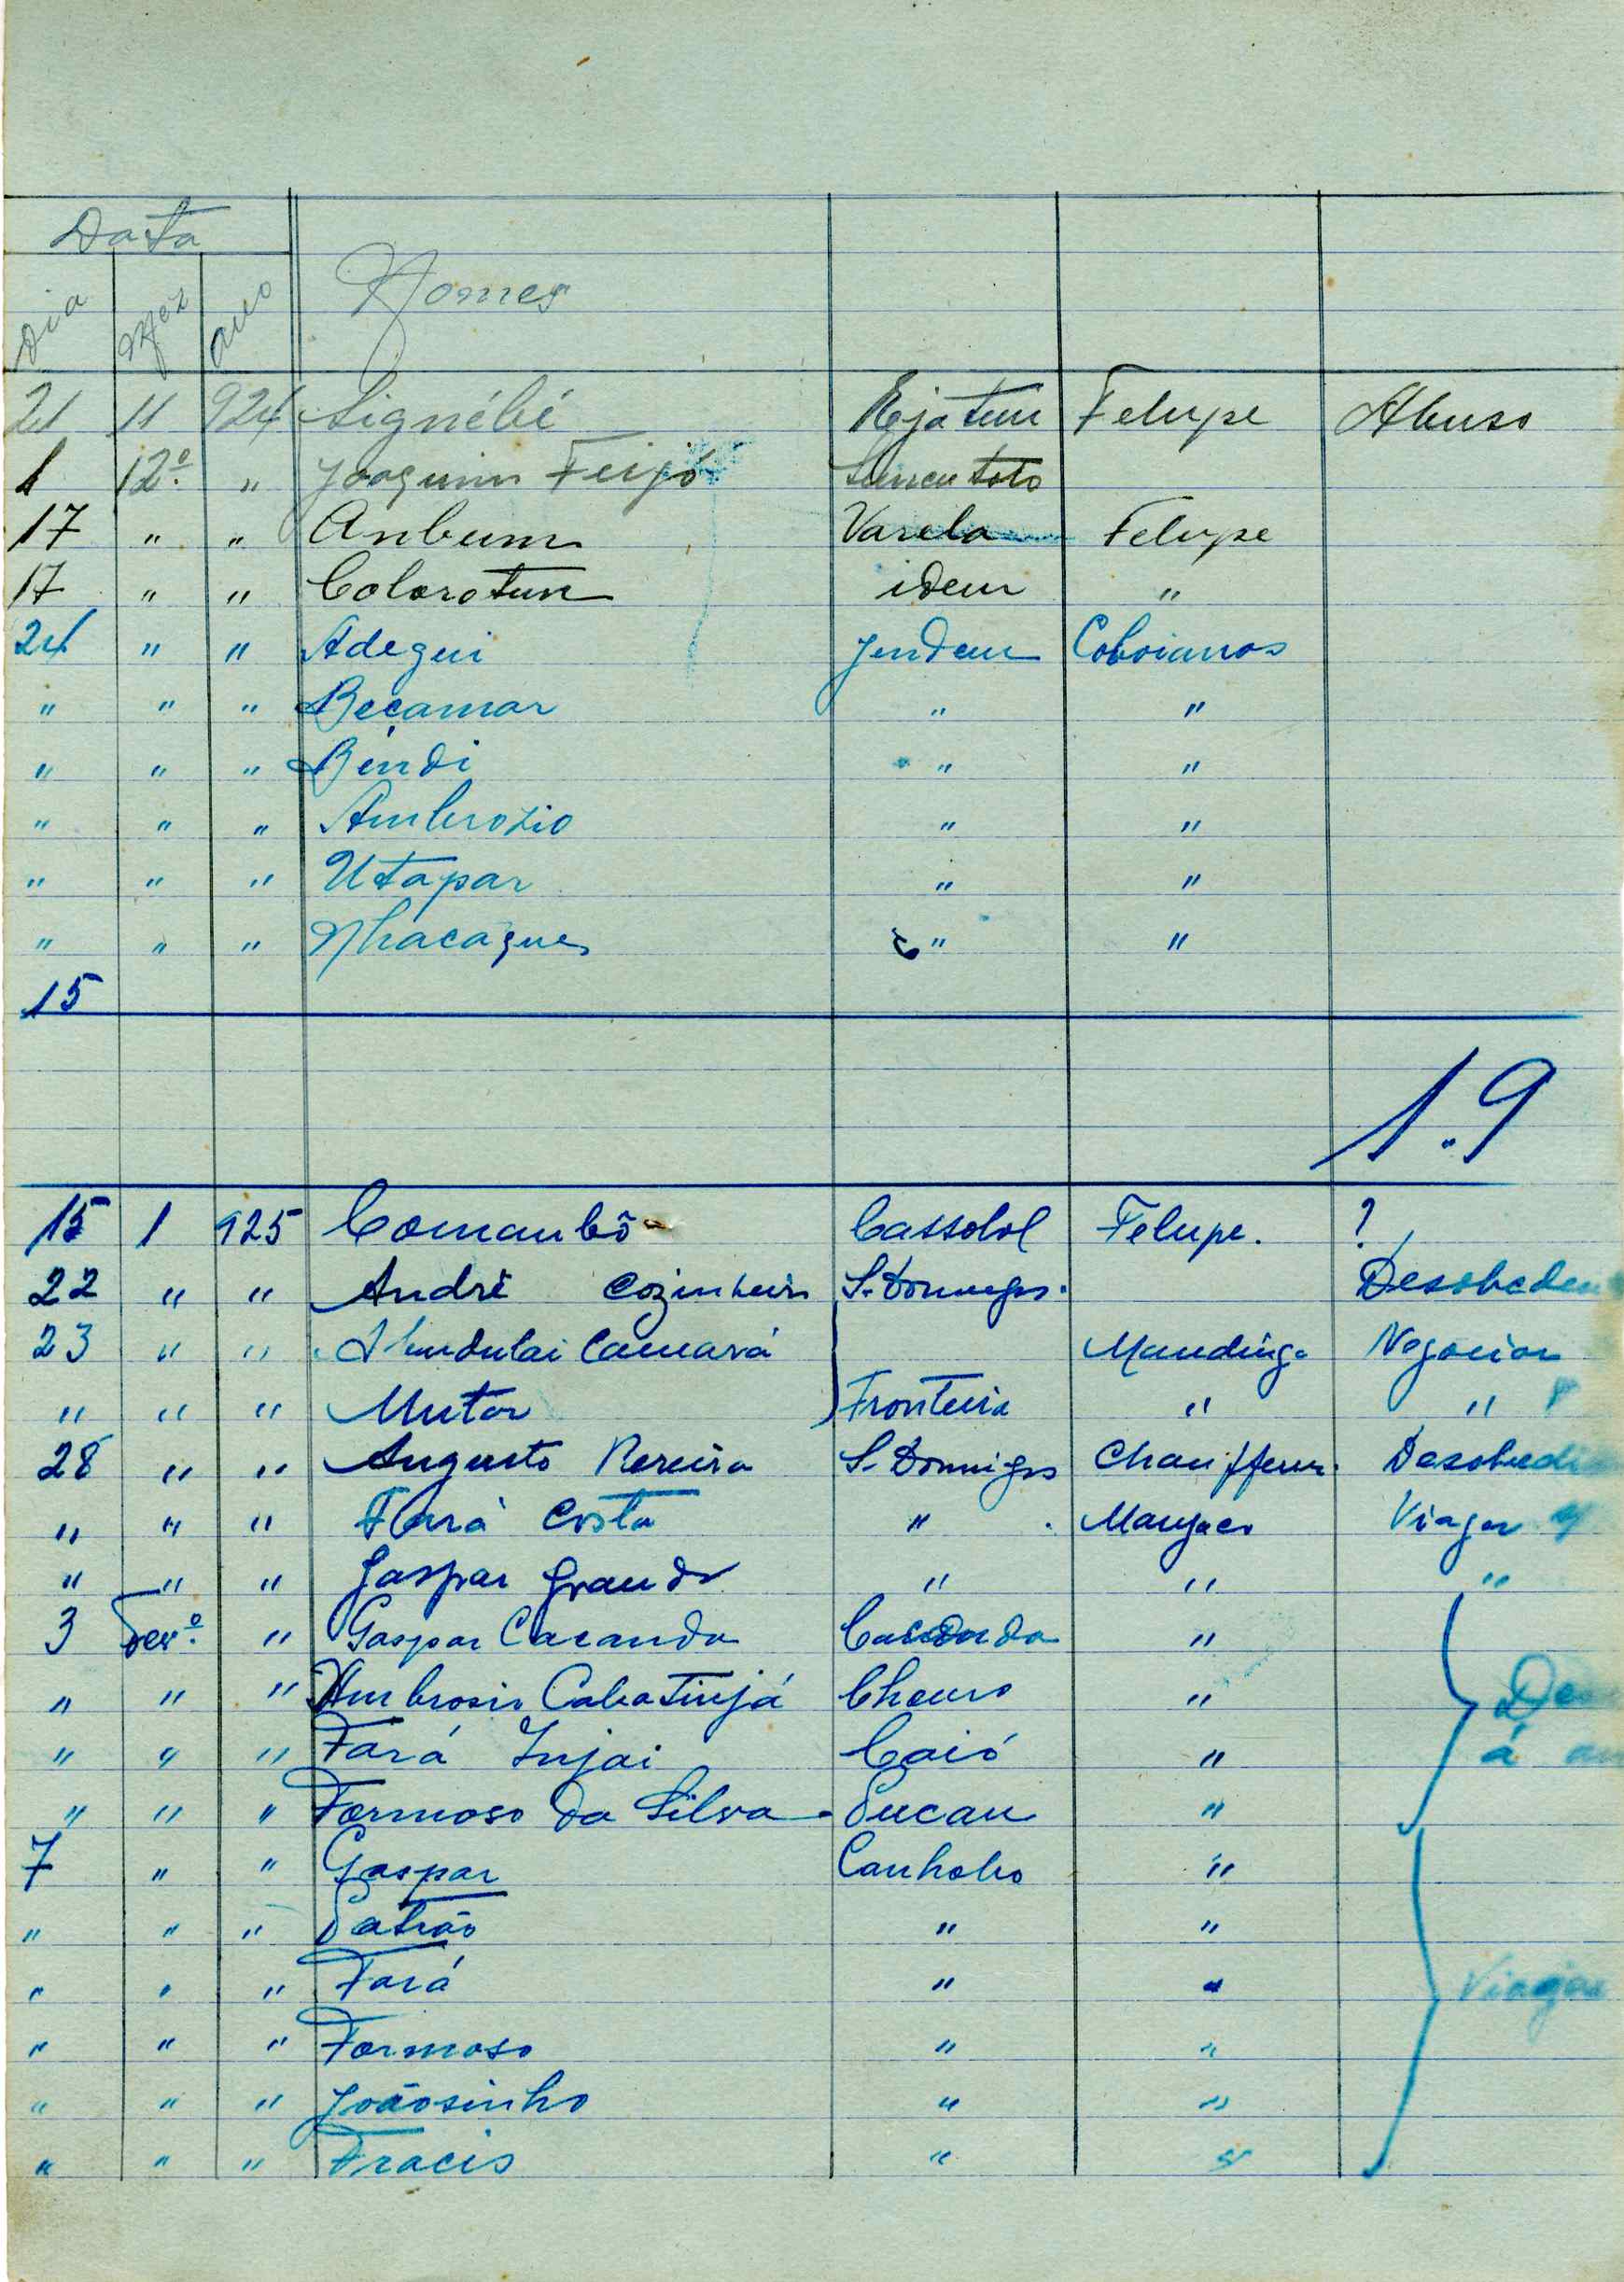 Data
Dia Mez Ano Nomes
21 11 924 Signébé Ejatem Felupe Abuso
1 12º " Joaquim Feijó Sucutoto
17 " " Anbum Varela Felupe
17 " " Colorotum idem "
24 " " Adegui Jendem Coboianos
" " " Becamar " "
" " " Bendi " "
" " " Ambrozio " "
" " " Utapar " "
" " " Nhacaques " "
15
1.9
15 1 925 Comanbô Cassolol Felupe. ?
22 " " André Cozinheiro S. Domingos. Desobedien
23 " " Abudulai Camará Mandinga Negocian
" " " Mutar Fronteira " "
28 " " Augusto Pereira S. Domingos Chauffeur. Desobedi
" " " Fará Costa " Manjaco Viajar
" " " Gaspar Grande " " "
3 Fevº. " Gaspar Cacanda Cacanda "
" " " Ambrosio Cabatinjá Churo " Des
" " " Fará Injai Caió " á
" " " Formoso da Silva Pucau "
7 " " Gaspar Canhobo "
" " " Patrão " "
" " " Fará " " Viajar
" " " Formoso " "
" " " Joãosinho " "
" " " Fracis " "